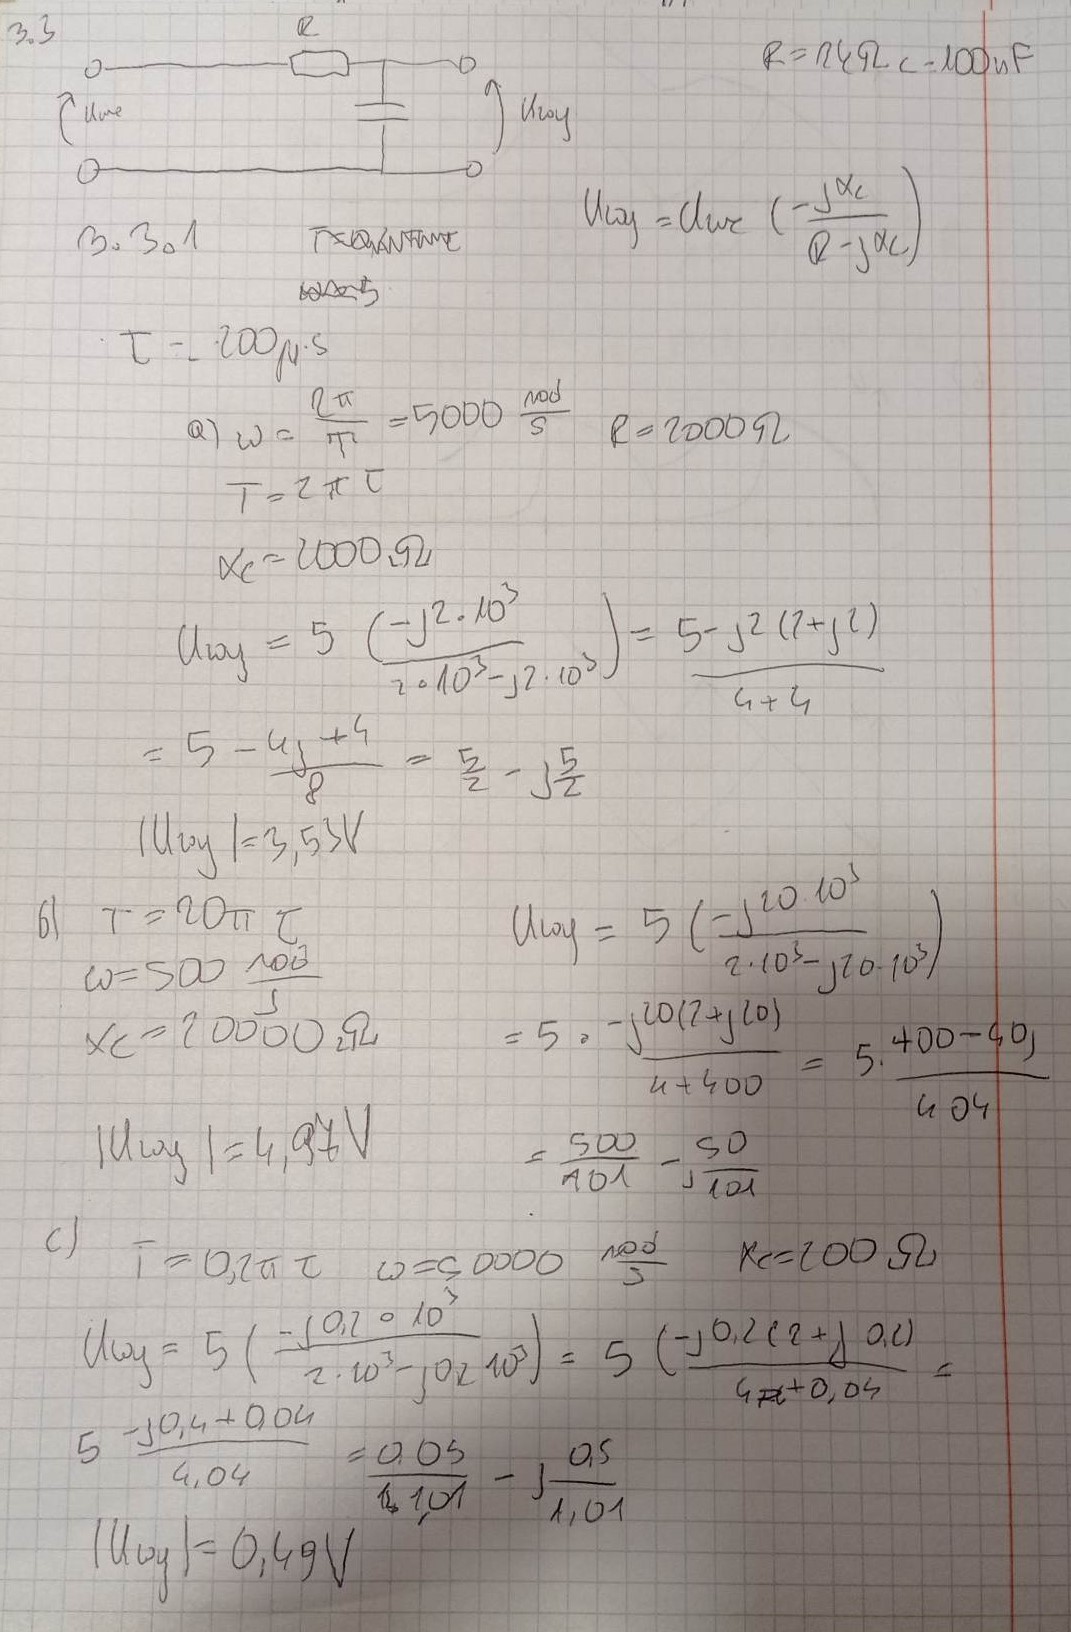 3.3
R
R=2kΩ C=100nF
Uwe
Uwy
Uwy = Uwe (-jXc / (R-jXc))
3.3.1
τ = 200μs
a) ω = 2π/T = 5000 rad/s R=2000Ω
T=2πτ
Xc=2000Ω
Uwy = 5 (-j2·10³ / (2·10³-j2·10³)) = 5-j2(2+j2) / (4+4)
= 5 -4j+4 / 8 = 5/2 - j5/2
|Uwy|=3,53V
b) T=20πτ
ω=500 rad/s
Xc=20000Ω
|Uwy|=4,97V
Uwy = 5 (-j20·10³ / (2·10³-j20·10³))
= 5 · -j20(2+j20) / (4+400) = 5· 400-40j / 404
= 500/101 - j50/101
c) T=0,2πτ ω=50000 rad/s Xc=200Ω
Uwy = 5 (-j0,2·10³ / (2·10³-j0,2·10³)) = 5 (-j0,2(2+j0,2) / (4+0,04) =
5 -j0,4+0,04 / 4,04 = 0,05/1,01 - j 0,5/1,01
|Uwy|=0,49V